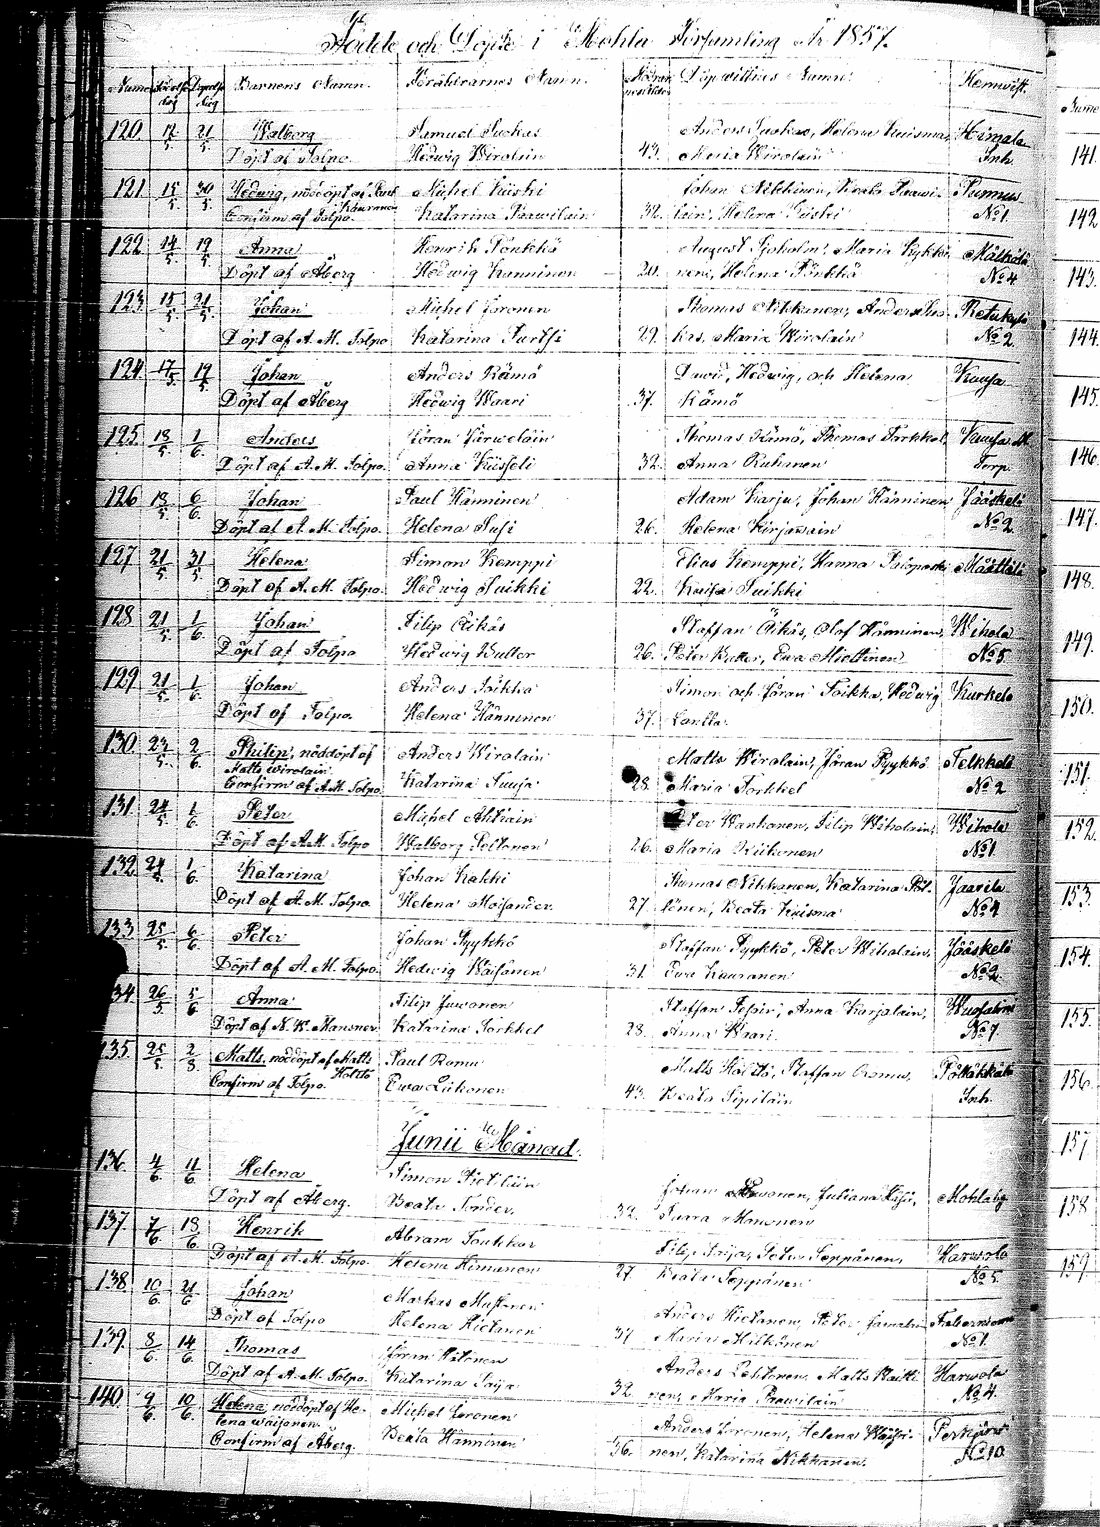 Födde och Döpte i Mohla Församling År 1857.
Födelse dag Döpelse dag Barnens Namn. Föräldrarnes Namn. Modrens Döpwittnes Namn. Hemwist.
120. 17/5 21/5 Walborg Samuel Suckas Anders Suckas, Helena Kuisma, Himala
Döpt af Tolpo. Hedwig Wirolain 43. Maria Wirolain Inh.
121. 15/5 30/5 Hedwig, nöddöpt af Paul Michel Kiiski Johan Nikkinen, Beata Paawi- Pumus
Confirm af Tolpo. Katarina Paawilain 32. lain, Helena Kiiski No 1.
122. 14/5 19/5 Anna Henrik Pönkkö August Sjöholm, Maria Kykkö- Mälkölä
Döpt af Åberg Hedwig Hanninen 20. nen, Helena Pönkkö No 4
123. 15/5 21/5 Johan Michel Joronen Thomas Nikkanen, Anders
Döpt af A. M. Tolpo Katarina 29. Maria Wirolain No 2.
124. 17/5 19/5 Johan Anders Rämö Dawid, Hedwig, och Helena Kuusa
Döpt af Åberg Hedwig Waari 37. Rämö
125. 18/5 1/6 Anders Göran Järweläin Thomas Rämö, Thomas Torkkel,
Döpt af A. M. Tolpo. Anna Kiisseli 32. Anna Ruhanen Torp.
126. 18/5 6/6. Johan Paul Hänninen Adam Karju, Johan Hänninen, Jääskelä
Döpt af A. M. Tolpo. Helena Susi 26. Helena Kirjawain No 2.
127. 21/5 31/5. Helena Simon Kemppi Elias Kemppi, Hanna Määttälä
Döpt af A. M. Tolpo. Hedwig Suikki 22. Kaisa Suikki
128. 21/5. 1/6. Johan Filip Äikäs Staffan Äikäs, Olof Hänninen, Wihola
Döpt af Tolpo Hedwig Kutter 26. Peter Kutter, Ewa Miettinen No 5
129. 21/5. 1/6. Johan Anders Toikka Simon och Göran Toikka, Hedwig Kurkela
Döpt af Tolpo. Helena Hänninen 37. Lantta.
130. 23/5. 2/6. Philip, nöddöpt af Anders Wirolain Matts Wirolain, Göran Pyykkö Telkkälä
Matts Wirolain.
Confirm af A. M. Tolpo. Katarina Suuja 28. Maria Torkkel No 2
131. 24/5. 1/6. Peter Michel Ahtiain Peter Wanhanen, Filip Wiholain, Wihola
Döpt af A. M. Tolpo Walborg Peltonen 26. Maria Kiikonen No 1.
132. 24/5. 1/6. Katarina Johan Kakki Thomas Nikkanen, Katarina Pöl- Jaarila
Döpt af A. M. Tolpo. Helena Moisander 27. lönen, Beata Kuisma No 4
133 25/5. 6/6. Peter Johan Pyykkö Staffan Pyykkö, Peter Wiholain, Jääskelä
Döpt af A. M. Tolpo. Hedwig Wäisänen 31. Ewa Kauranen No 2.
134 26/5. 5/6 Anna Filip Juwonen Staffan Anna Karjalain,
Döpt af N. K. Mansner. Katarina Torkkel 28. Anna Waari. No 7
135 25/5. 2/8. Matts, nöddöpt af Matts Paul Ramu Matts Staffan Ramu, Pölläkkälä
Confirm af Tolpo. Ewa Liikonen 43. Beata Sipiläin Inh.
Junii Månad.
136. 4/6. 11/6. Helena Simon Pietiläin Johan Juliana Mohlaby
Döpt af Åberg. Beata Tander, 32. Suara Mononen
137 7/6 18/6. Henrik Abram Toukkar Filip Saija, Peter Seppänen, Harwola
Döpt af A. M. Tolpo. Helena Himanen 27. Beata Seppänen No 5.
138. 10/6 21/6 Johan Markus Mustonen Anders Hietanen, Peter
Döpt af Tolpo Helena Hietanen 37. Maria Mikkonen No 1.
139. 8/6. 14/6. Thomas Göran Ahtonen Anders Lehtonen, Matts Harwola
Döpt af A. M. Tolpo. Katarina Saija 32. nen, Maria Paawilain No 4.
140. 9/6. 10/6. Helena, nöddöpt af He- Michel Loronen Anders Loronen, Helena Wäisä- Perkjärwi
lena Wäisänen.
Confirm af Åberg. Beata Hänninen 36. nen, Katarina Nikkanen. No 10.
141.
142
143.
144.
145.
146.
147.
148.
149.
150.
151
152.
153.
154.
155.
156
157
158
159